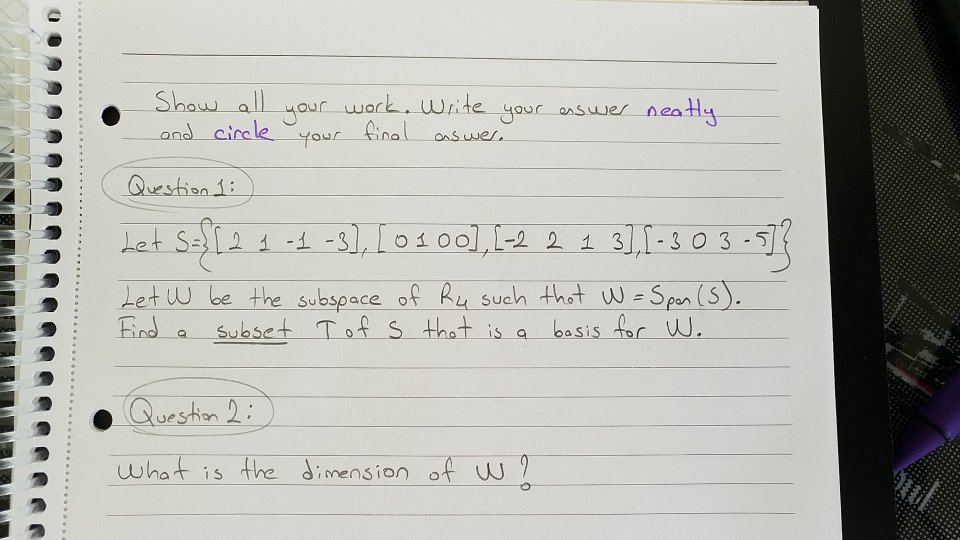 Show all your work. Write your answer neatly
and circle your final answer.
Question 1:
Let S={[ 2 1 -1 -3], [ 0 1 0 0], [-2 2 1 3], [-3 0 3 -5]}
Let W be the subspace of R4 such that W = Span (S).
Find a subset T of S that is a basis for W.
Question 2:
What is the dimension of W?